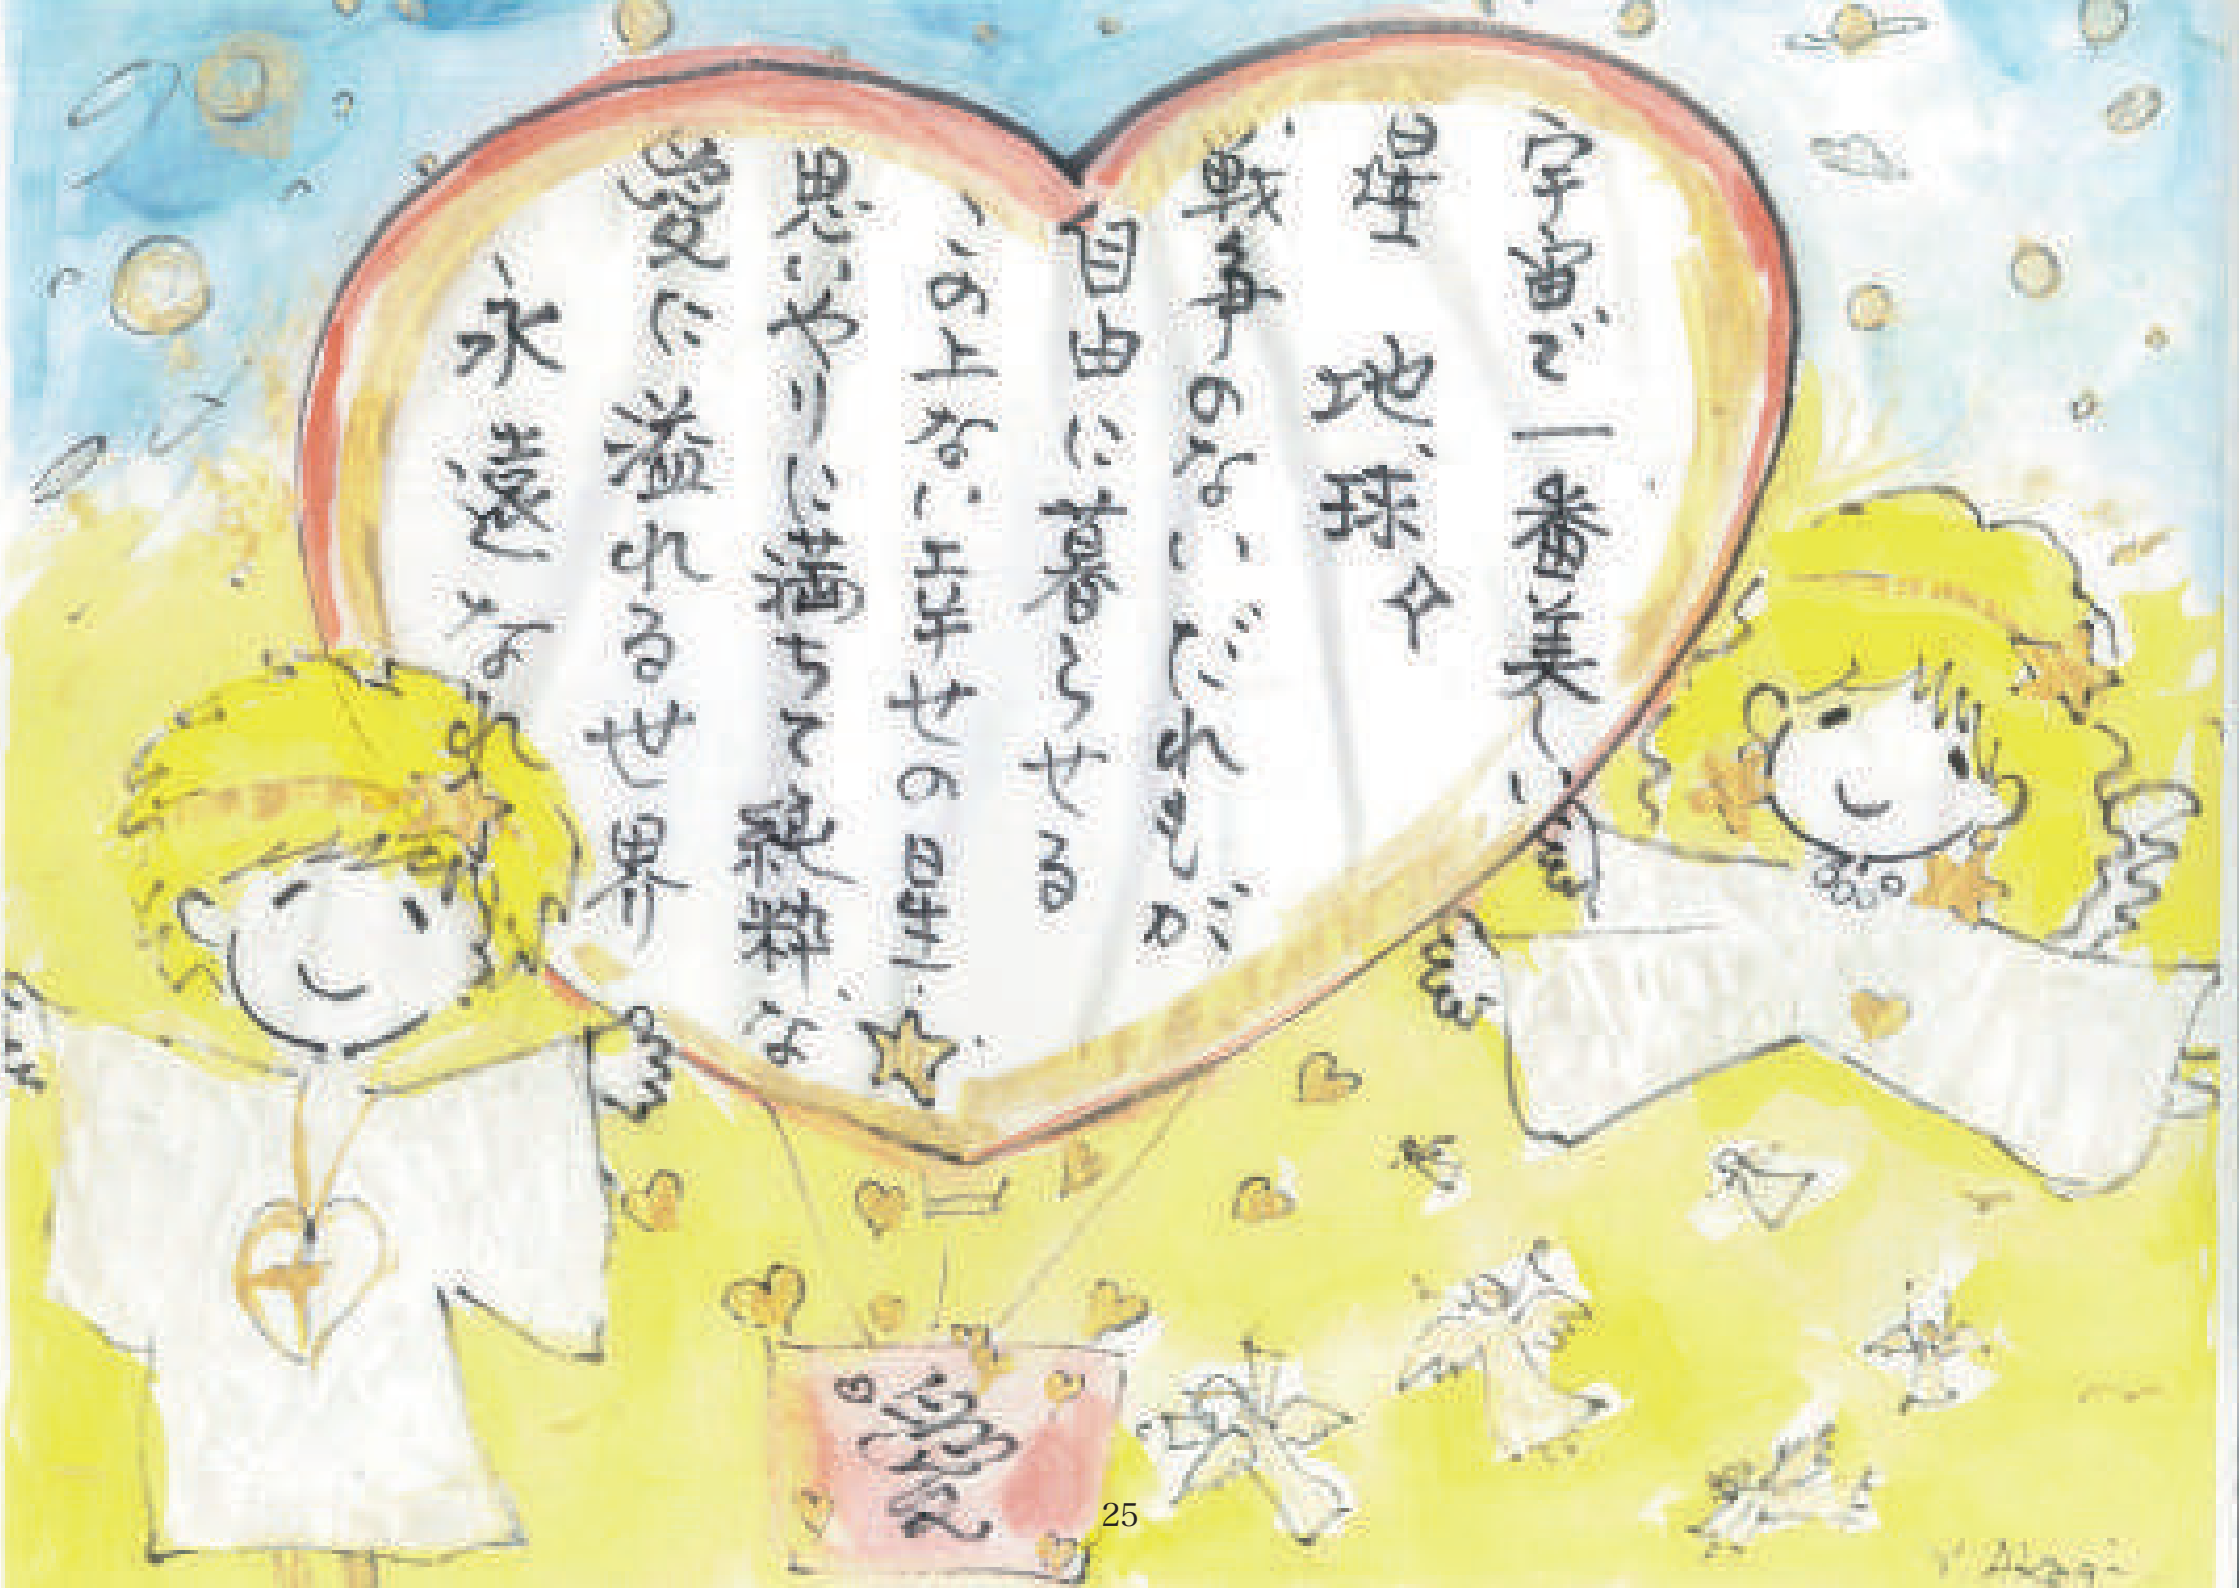 宇宙で一番美しい
星 地球
戦争のないだれもが
自由に暮らせる
この上ない幸せの星
思いやりに満ちて純粋な
愛に溢れる世界
永遠なれ
愛
25